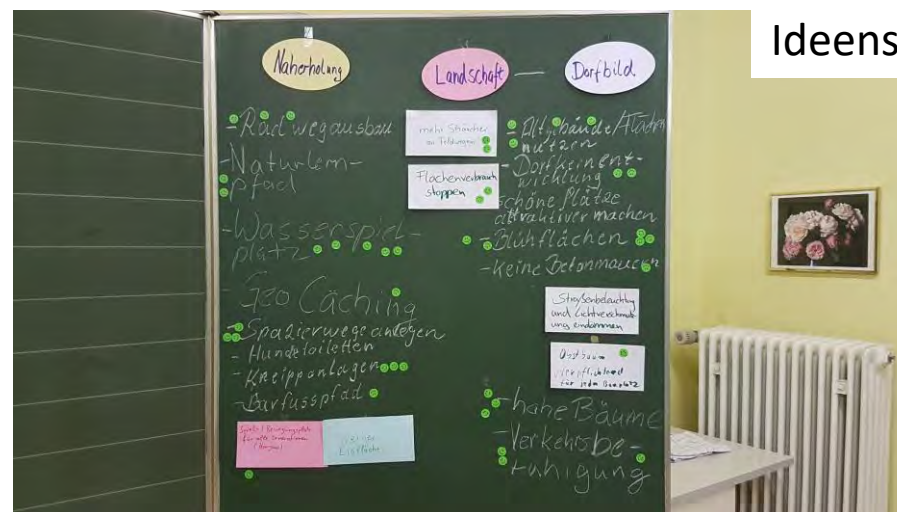 Ideens
Naherholung
Landschaft
Dorfbild
-Radwegausbau
-Naturlern-
pfad
-Wasserspiel-
platz
-Geo Cäching
-Spazierwege anlegen
-Hundetoiletten
-Kneippanlagen
-Barfusspfad
für alle Generationen
mehr Sträucher
Flächenverbrauch
stoppen
-Altgebäude/Flächen
nutzen
-Dorfkernent-
wicklung
schöne Plätze
attraktiver machen
-Blühflächen
-keine Betonmauern
Straßenbeleuchtung
und Lichtverschmutz
ung eindämmen
Obstbaum
verpflichtend
für jeden Bauplatz
-hohe Bäume
-Verkehrsbe-
ruhigung